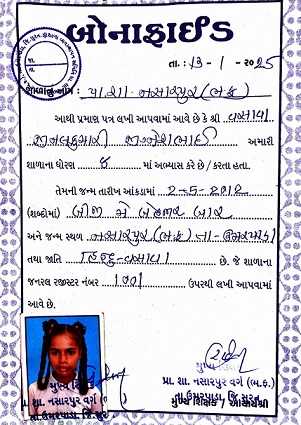 બોનાફાઈડ
તા. : 13 - 1 - ૨૦25
શાળાનું નામ : પ્રા. શા. નસારપુર (ભ.ક)
આથી પ્રમાણ પત્ર લખી આપવામાં આવે છે કે શ્રી વસાવા
જીનલકુમારી જીગ્નેશભાઈ અમારી
શાળાના ધોરણ ૭ માં અભ્યાસ કરે છે / કરતા હતા.
તેમની જન્મ તારીખ આંકડામાં 2-5-2012
(શબ્દોમાં) બીજી મે બે હજાર બાર
અને જન્મ સ્થળ નસારપુર (ભ.ક) તા- ઉમરપાડા
તથા જાતિ હિન્દુ-વસાવા છે. જે શાળાના
જનરલ રજીસ્ટર નંબર 1001 ઉપરથી લખી આપવામાં
આવે છે.
પ્રા. શા. નસારપુર વર્ગ (ભ.ક.)
તા. ઉમરપાડા, જિ. સુરત
મુખ્ય શિક્ષક / આચાર્યશ્રી
મુખ્ય શિક્ષક
શા. નસારપુર વર્ગ
તા. ઉમરપાડા, જિ. સુરત